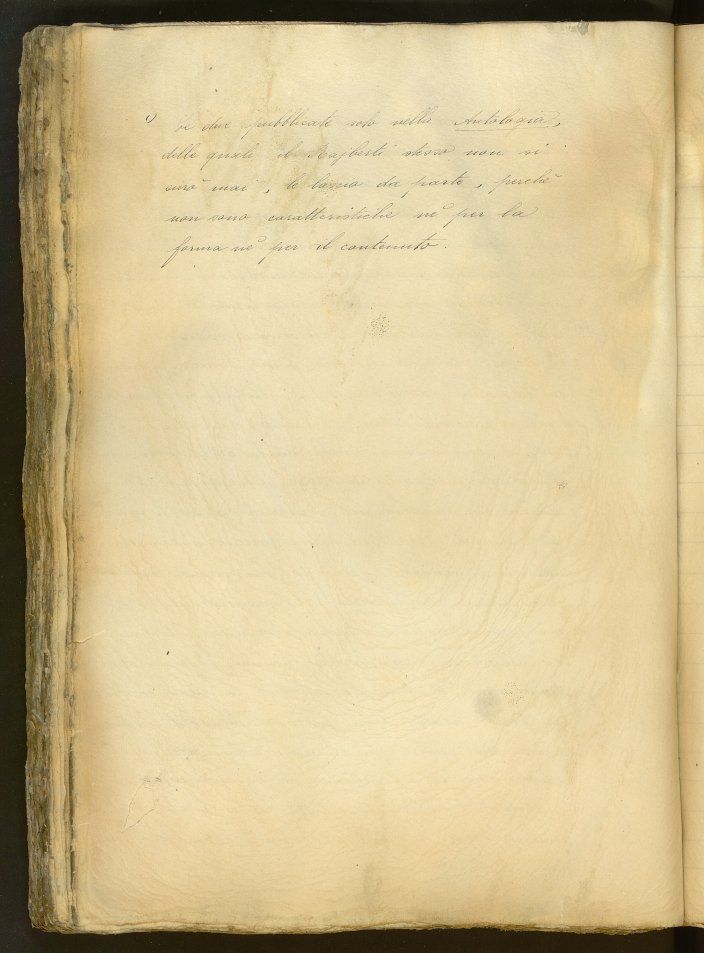 Le due pubblicate solo nella Antologia,
delle quali il Rajberti stesso non si
curò mai, le lascio da parte, perchè
non sono caratteristiche nè per la
forma nè per il contenuto.